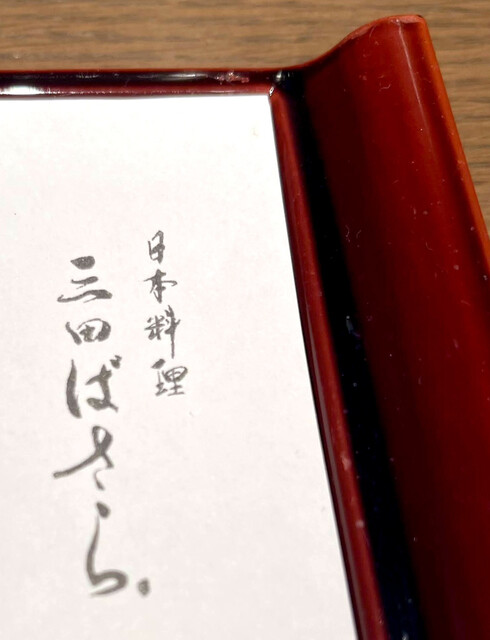 日本料理
三田ばさら